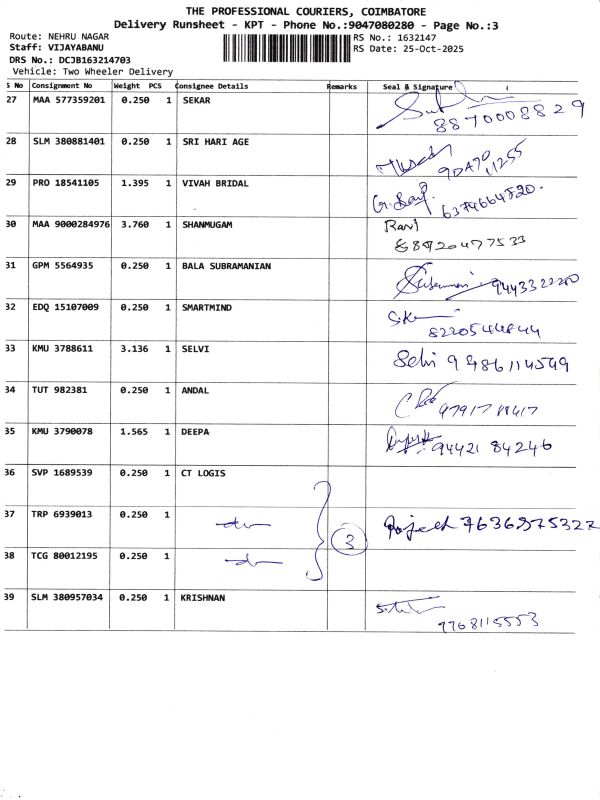 THE PROFESSIONAL COURIERS, COIMBATORE
Delivery Runsheet - KPT - Phone No.:9047080280 - Page No.:3
Route: NEHRU NAGAR RS No.: 1632147
Staff: VIJAYABANU RS Date: 25-Oct-2025
DRS No.: DCJB163214703
Vehicle: Two Wheeler Delivery
S No Consignment No Weight PCS Consignee Details Remarks Seal & Signature
27 MAA 577359201 0.250 1 SEKAR
8870008829
28 SLM 380881401 0.250 1 SRI HARI AGE
29 PRO 18541105 1.395 1 VIVAH BRIDAL
6374664520.
30 MAA 9000284976 3.760 1 SHANMUGAM Ravi
8892047 7533
31 GPM 5564935 0.250 1 BALA SUBRAMANIAN
32 EDQ 15107009 0.250 1 SMARTMIND
33 KMU 3788611 3.136 1 SELVI Selvi
34 TUT 982381 0.250 1 ANDAL
35 KMU 3790078 1.565 1 DEEPA 94421 84246
36 SVP 1689539 0.250 1 CT LOGIS
37 TRP 6939013 0.250 1 -do- 3 Rajesh 7636975327
38 TCG 80012195 0.250 1 -do-
39 SLM 380957034 0.250 1 KRISHNAN